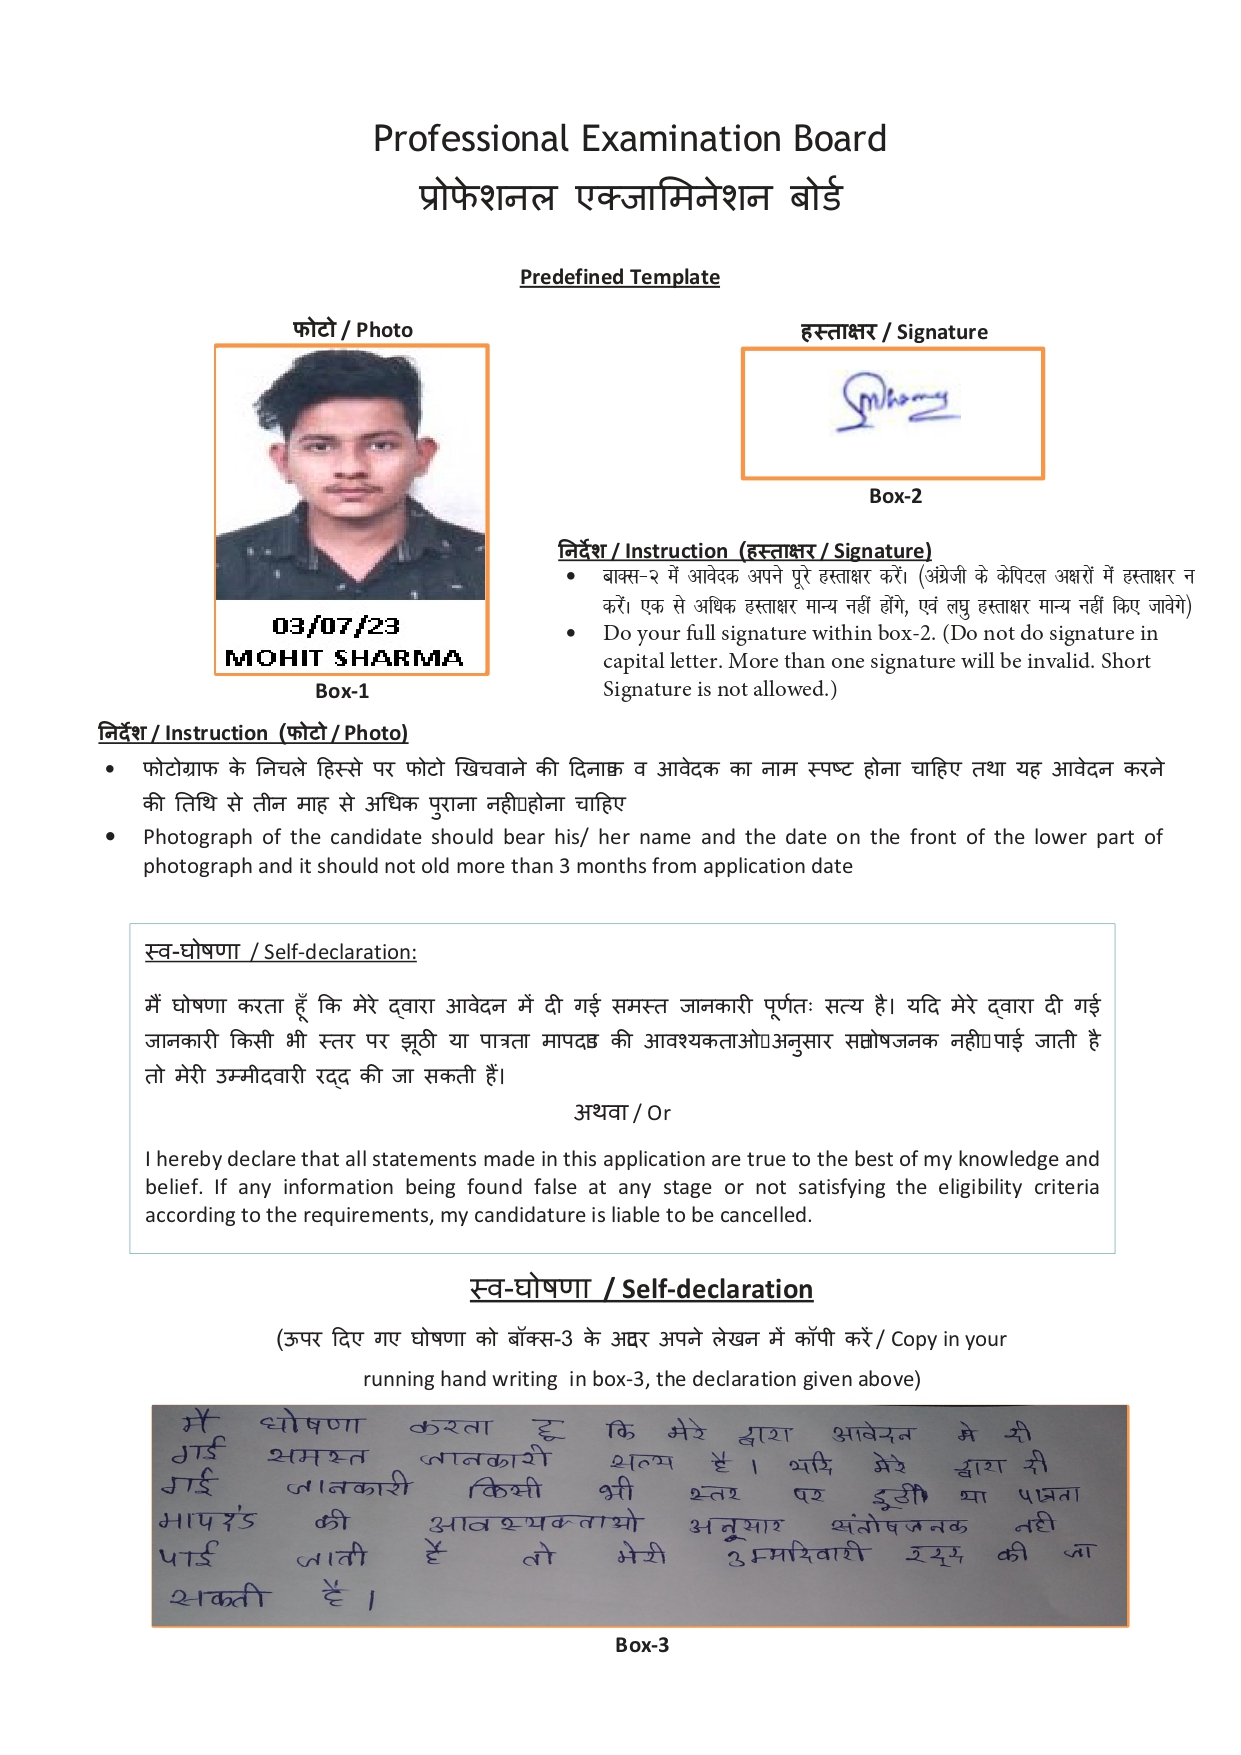 Professional Examination Board
प्रोफेशनल एक्जामिनेशन बोर्ड
Predefined Template
फोटो / Photo
03/07/23
MOHIT SHARMA
Box-1
हस्ताक्षर / Signature
Box-2
निर्देश / Instruction (हस्ताक्षर / Signature)
• बाक्स-२ में आवेदक अपने पूरे हस्ताक्षर करें। (अंग्रेजी के केपिटल अक्षरों में हस्ताक्षर न
करें। एक से अधिक हस्ताक्षर मान्य नहीं होंगे, एवं लघु हस्ताक्षर मान्य नहीं किए जावेगे)
• Do your full signature within box-2. (Do not do signature in
capital letter. More than one signature will be invalid. Short
Signature is not allowed.)
निर्देश / Instruction (फोटो / Photo)
• फोटोग्राफ के निचले हिस्से पर फोटो खिचवाने की दिनाक व आवेदक का नाम स्पष्ट होना चाहिए तथा यह आवेदन करने
की तिथि से तीन माह से अधिक पुराना नही होना चाहिए
• Photograph of the candidate should bear his/ her name and the date on the front of the lower part of
photograph and it should not old more than 3 months from application date
स्व-घोषणा / Self-declaration:
मैं घोषणा करता हूँ कि मेरे द्वारा आवेदन में दी गई समस्त जानकारी पूर्णतः सत्य है। यदि मेरे द्वारा दी गई
जानकारी किसी भी स्तर पर झूठी या पात्रता मापदड की आवश्यकताओ अनुसार सतोषजनक नही पाई जाती है
तो मेरी उम्मीदवारी रद्द की जा सकती हैं।
अथवा / Or
I hereby declare that all statements made in this application are true to the best of my knowledge and
belief. If any information being found false at any stage or not satisfying the eligibility criteria
according to the requirements, my candidature is liable to be cancelled.
स्व-घोषणा / Self-declaration
(ऊपर दिए गए घोषणा को बॉक्स-3 के अदर अपने लेखन में कॉपी करें / Copy in your
running hand writing in box-3, the declaration given above)
मै घोषणा करता हू कि मेरे द्वारा आवेदन मे दी
गई समस्त जानकारी सत्य है । यदि मेरे द्वारा दी
गई जानकारी किसी भी स्तर पर झूठी या पात्रता
मापदंड की आवश्यकताओ अनुसार संतोषजनक नही
पाई जाती है तो मेरी उम्मदिवारी रद्द की जा
सकती है ।
Box-3